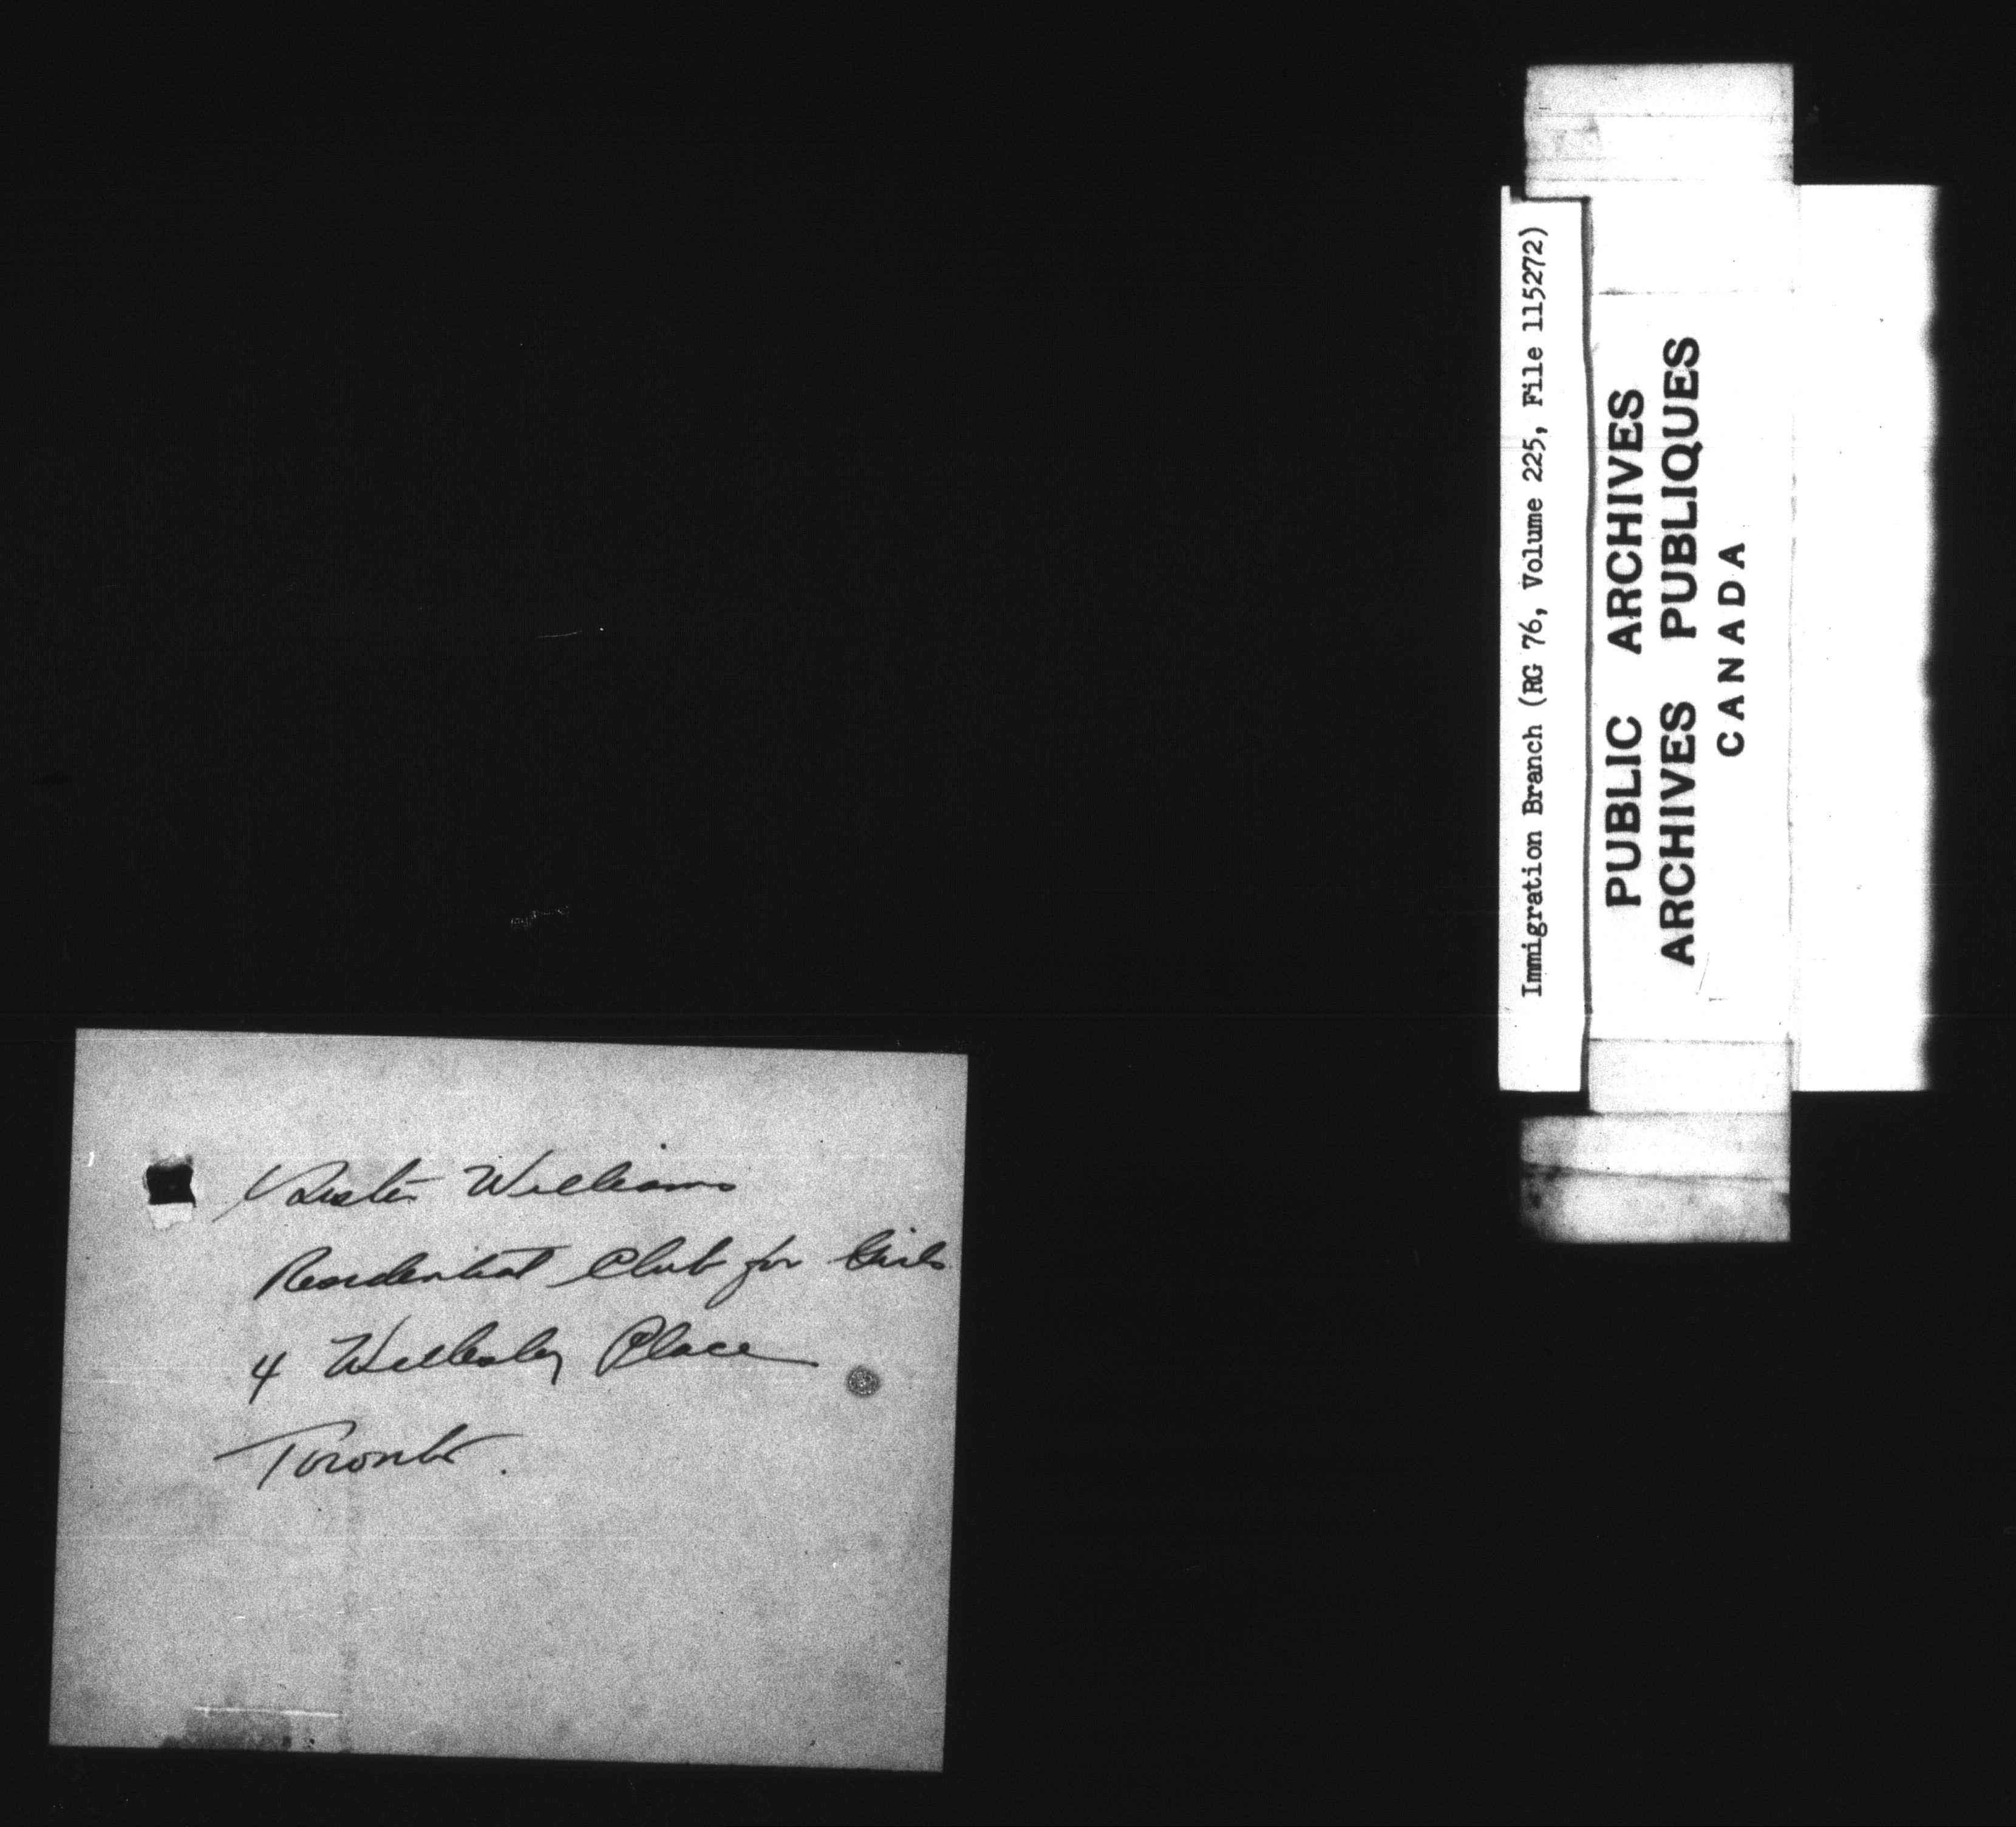 Sister Williams
Residential Club for Girls
4 Wellesley Place
Toronto.
Immigration Branch (RG 76, Volume 225, File 115272)
PUBLIC ARCHIVES
ARCHIVES PUBLIQUES
CANADA